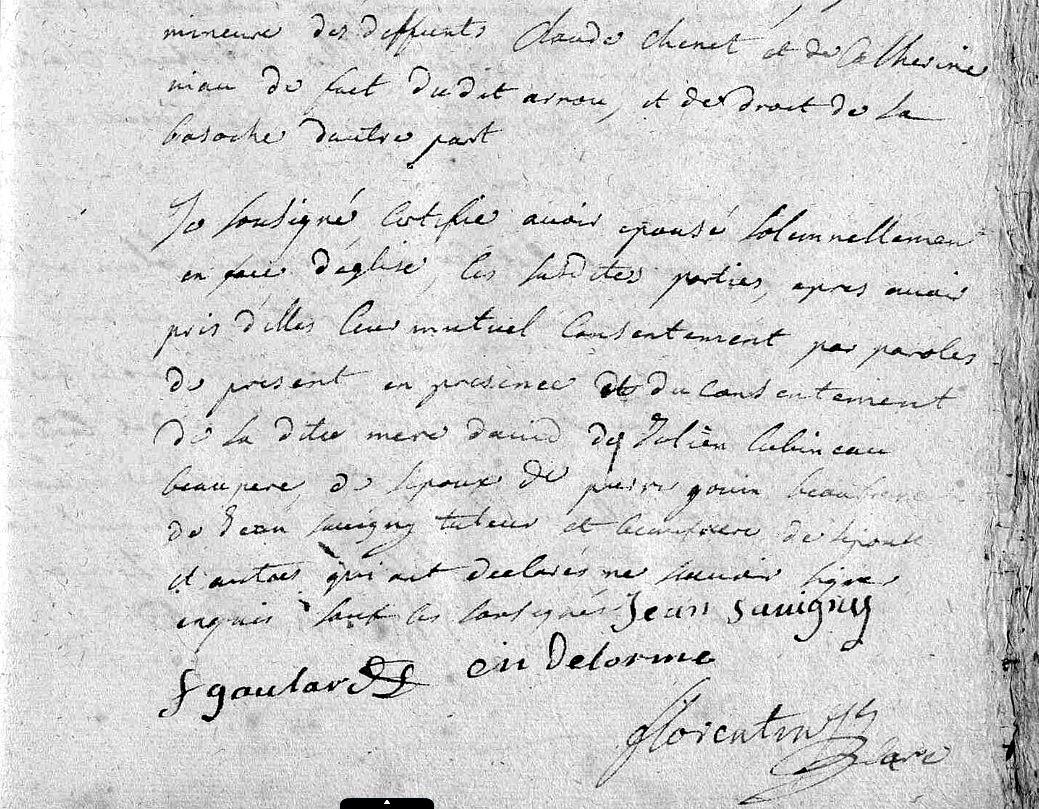 mineure des deffunts Claude chenet et de Catherine
niau de fait dudit arnou, et de droit de la
basoche dautre part
Je sousigné certifie avoir epousé solemnellement
en face d'eglise, les susdites parties, apres avoir
pris d'elles leur mutuel consentement par paroles
de present en presence et du consentement
de la dite mere david de Julien lubineau
beaupere, de lepoux de pierre gouin beaufrere
de Jean savigny tuteur et beaufrere de lepouse
et autres qui ont declarés ne savoir signer
enquis sauf les sousignés Jean Savigny
f goulard en Delorme
florentin